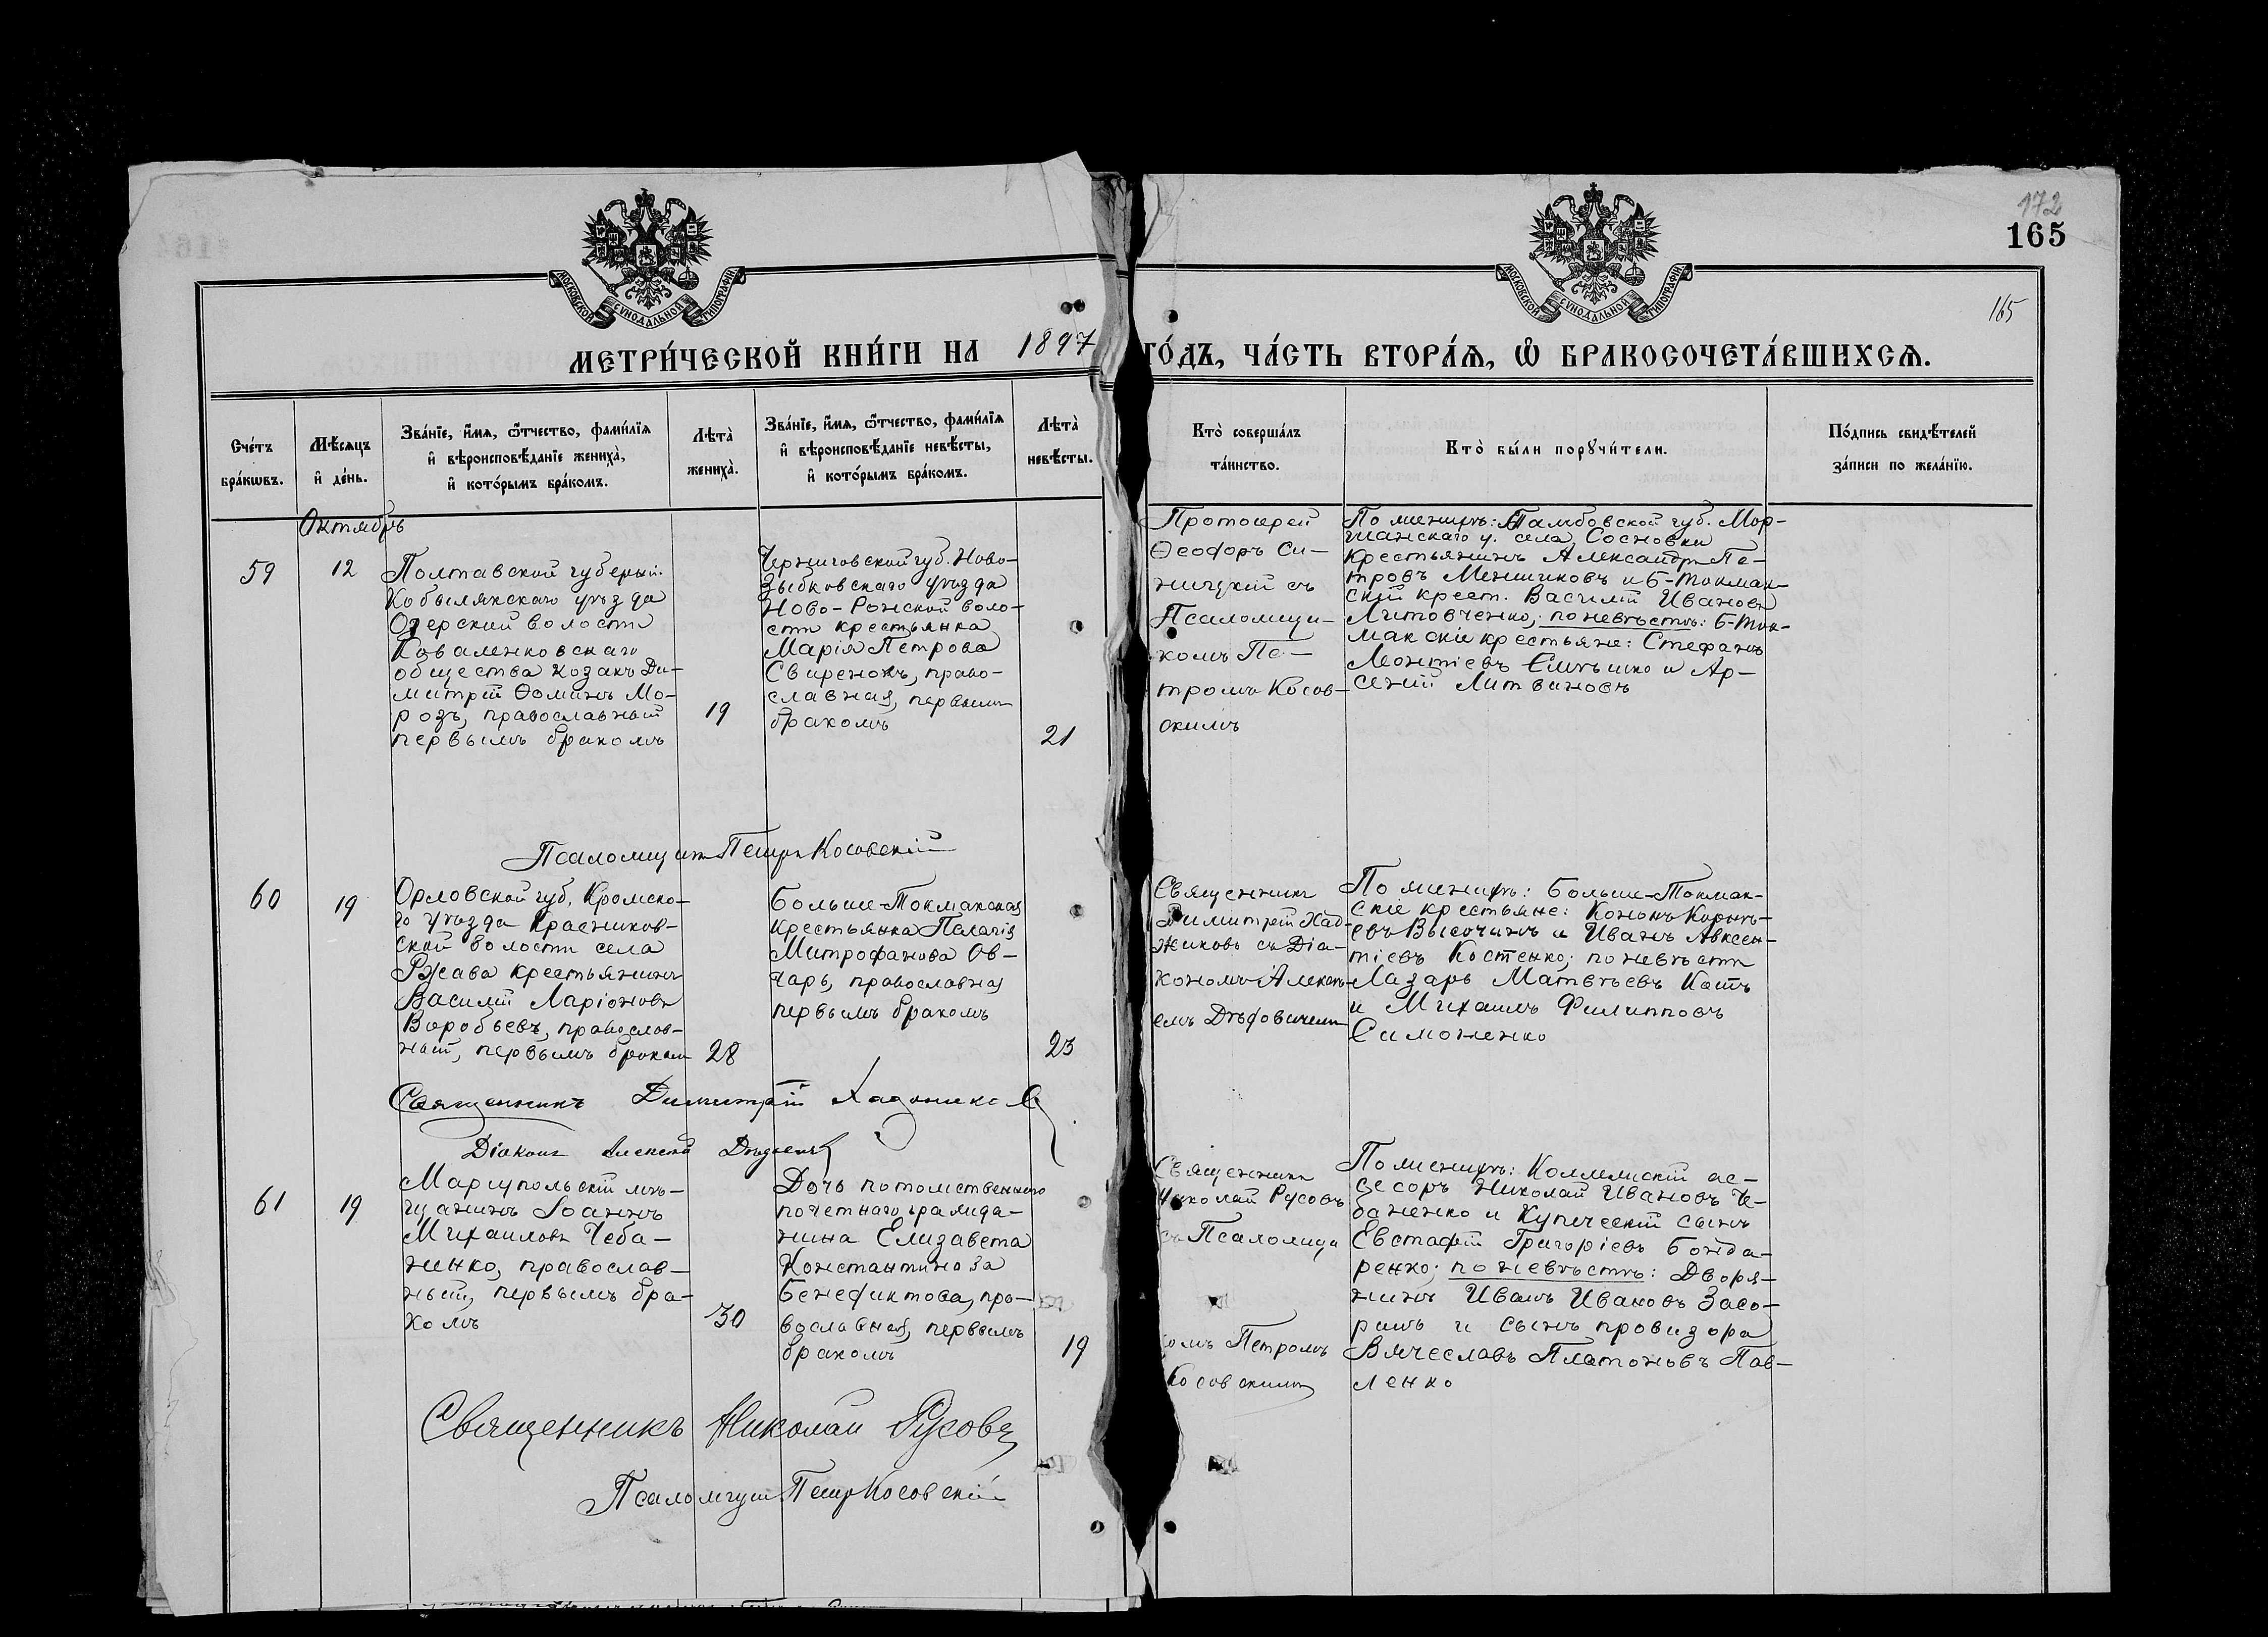 172
165
165
МОСКОВСКОЙ СѴНОДАЛЬНОЙ ТИПОГРАФІИ
МОСКОВСКОЙ СѴНОДАЛЬНОЙ ТИПОГРАФІИ
МЕТРИ́ЧЕСКОЙ КНИ́ГИ НА 1897 ГО́ДЪ, ЧА́СТЬ ВТОРА́Ѧ, Ѽ БРАКОСОЧЕТА́ВШИХСѦ.
Сче́тъ
бра́кѡвъ.
Мѣ́сяцъ
и҆ де́нь.
Зва́нїе, и҆́мѧ, ѻ҆́тчество, фами́лїѧ
и҆ вѣроисповѣ́данїе жениха̀,
и҆ кото́рымъ бра́комъ.
Лѣта̀
жениха̀.
Зва́нїе, и҆́мѧ, ѻ҆́тчество, фами́лїѧ
и҆ вѣроисповѣ́данїе невѣ́сты,
и҆ кото́рымъ бра́комъ.
Лѣта̀
невѣ́сты.
Кто̀ соверша́лъ
та́инство.
Кто̀ бы́ли порꙋчи́тели.
По́дпись свидѣ́телей
за́писи по жела́нїю.
Октябрь
59
12
Полтавской губерніи
Кобылякскаго уѣзда
Озерской волости
Коваленковскаго
общества козакъ Ди-
митрій Ѳоминъ Мо-
розъ, православный
первымъ бракомъ
19
Черниговской губ. Ново-
зыбковскаго уѣзда
Ново-Ронской воло-
сти крестьянка
Марія Петрова
Свиренокъ, право-
славная, первымъ
бракомъ
21
Протоіерей
Ѳеодоръ Си-
ницкій съ
Псаломщи-
комъ Пе-
тромъ Косов-
скимъ
По женихѣ: Тамбовской губ. Мор-
шанскаго у. села Сосновки
крестьянинъ Александръ Пе-
тровъ Меншиковъ и Б-Токмак-
скій крест. Василій Ивановъ
Литовченко; по невѣстѣ: Б-Ток-
макскіе крестьяне: Стефанъ
Леонтіевъ и Ар-
сеній Литвиновъ
Псаломщикъ Петръ Косовскій
60
19
Орловской губ. Кромска-
го уѣзда Красников-
ской волости села
Ржава крестьянинъ
Василій Ларіоновъ
Воробьевъ, православ-
ный, первымъ бракомъ
28
Больше-Токмакская
крестьянка Пелагія
Митрофанова Ов-
чарь, православная
первымъ бракомъ
23
Священникъ
Димитрій Хад-
жиновъ съ Діа-
кономъ Алексі-
емъ Дѣдовичемъ
По женихѣ: Больше-Токмак-
скіе крестьяне: Кононъ Корнѣ-
евъ Высочинъ и Иванъ Авксен-
тіевъ Костенко; по невѣстѣ
Лазарь Матвѣевъ Котъ
и Михаилъ Филипповъ
Симоненко
Священникъ Димитрій Хаджиновъ
Діаконъ Алексій
61
19
Маріупольскій мѣ-
щанинъ Іоаннъ
Михаиловъ Чеба-
ненко, православ-
ный, первымъ бра-
комъ
30
Дочь потомственнаго
почетнаго гражда-
нина Елизавета
Константинова
Бенефиктова, пра-
вославная, первымъ
бракомъ
19
Священникъ
Николай Русовъ
съ Псаломщи
комъ Петромъ
Косовскимъ
По женихѣ: Коллежскій ас-
сесоръ Николай Ивановъ Че-
баненко и Купеческій сынъ
Евстафій Григорьевъ Бонда-
ренко; по невѣстѣ: Дворя-
нинъ Иванъ Ивановъ Засо-
ринъ и сынъ провизора
Вячеславъ Платоновъ Пав-
ленко
Священникъ Николай Русовъ
Псаломщикъ Петръ Косовскій